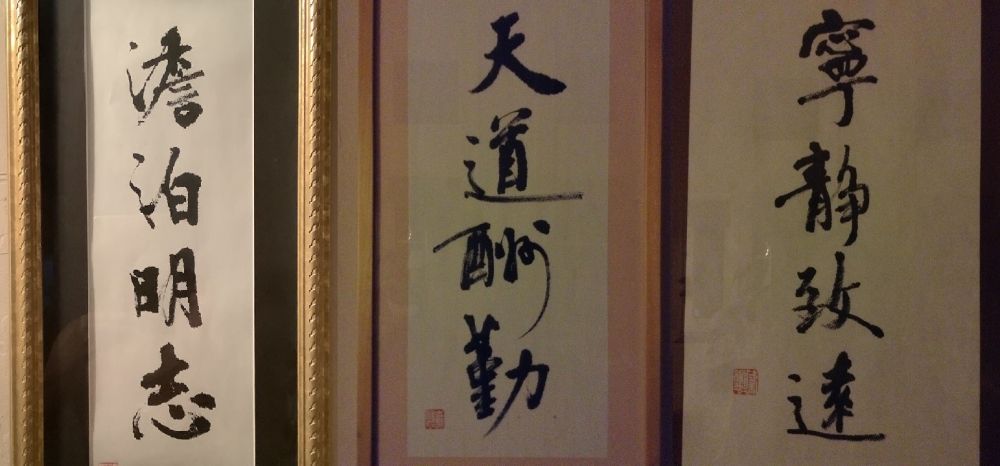 澹泊明志
天道酬勤
寧静致遠